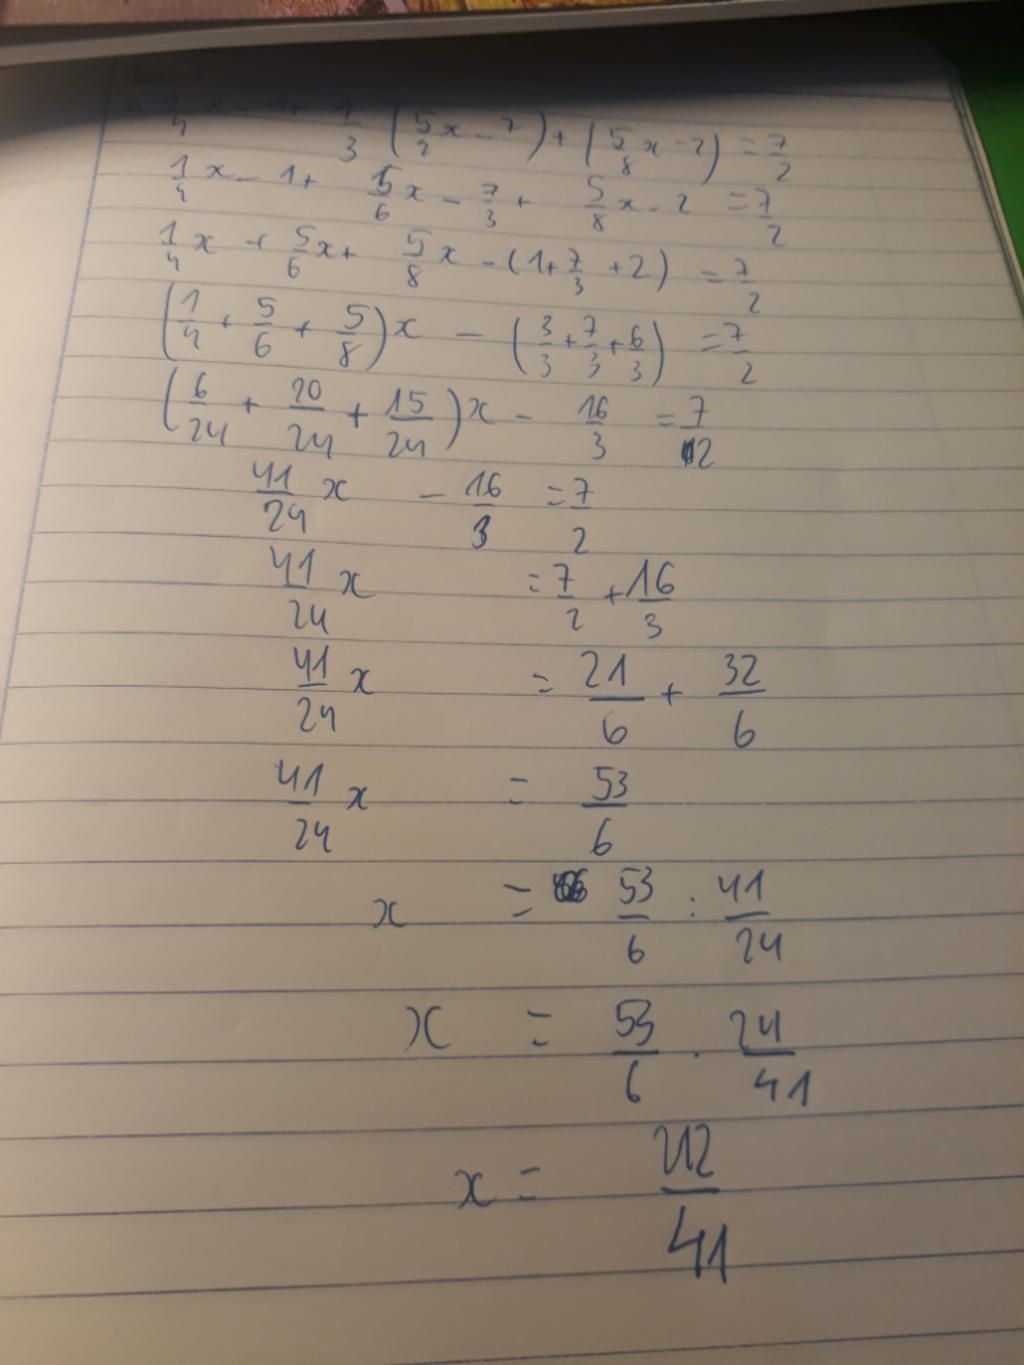 1/4 x - 1 + 1/3 (5/2 x - 7) + (5/8 x - 2) = 7/2
1/4 x - 1 + 5/6 x - 7/3 + 5/8 x - 2 = 7/2
1/4 x + 5/6 x + 5/8 x - (1 + 7/3 + 2) = 7/2
(1/4 + 5/6 + 5/8) x - (3/3 + 7/3 + 6/3) = 7/2
(6/24 + 20/24 + 15/24) x - 16/3 = 7/2
41/24 x - 16/3 = 7/2
41/24 x = 7/2 + 16/3
41/24 x = 21/6 + 32/6
41/24 x = 53/6
x = 53/6 : 41/24
x = 53/6 . 24/41
x = 212/41